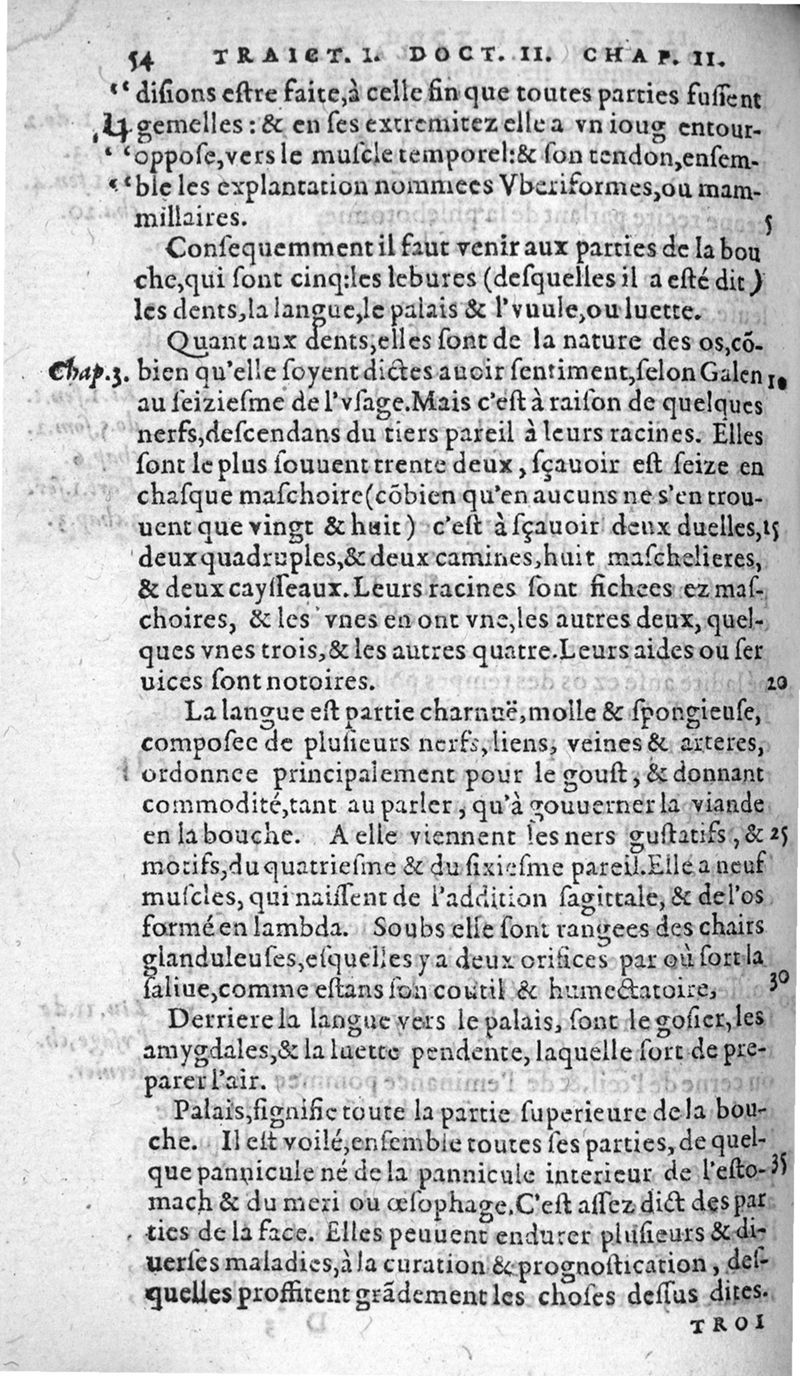 54 TRAICT. I. DOCT. II. CHAP. II.
“ diſions eſtre faite,à celle fin que toutes parties fuſſent
gemelles : & en ſes extremitez elle a vn ioug entour-
“ oppoſe,vers le muſcle temporel:& ſon tendon,enſem-
“ ble les explantation nommees Vberiformes,ou mam-
millaires. 5
Conſequemment il faut venir aux parties de la bou
che,qui ſont cinq:les lebures (deſquelles il a eſté dit)
les dents,la langue,le palais & l'vuule,ou luette.
Quant aux dents,elles ſont de la nature des os,cõ-
Chap.3. bien qu'elle ſoyent dictes auoir ſentiment,ſelon Galen 10
au ſeizieſme de l'vſage.Mais c'eſt à raiſon de quelques
nerfs,deſcendans du tiers pareil à leurs racines. Elles
ſont le plus ſouuent trente deux, ſçauoir eſt ſeize en
chaſque maſchoire(cõbien qu'en aucuns ne s'en trou-
uent que vingt & huit) c'eſt à ſçauoir deux duelles, 15
deux quadruples,& deux camines,huit maſchelieres,
& deux cayſſeaux.Leurs racines ſont fichees ez maſ-
choires, & les vnes en ont vne,les autres deux, quel-
ques vnes trois,& les autres quatre.Leurs aides ou ſer
uices ſont notoires. 20
La langue eſt partie charnuë,molle & ſpongieuſe,
compoſee de pluſieurs nerfs,liens, veines & arteres,
ordonnee principalement pour le gouſt, & donnant
commodité,tant au parler, qu'à gouuerner la viande
en la bouche. A elle viennent les ners guſtatifs, & 25
motifs,du quatrieſme & du ſixieſme pareil.Elle a neuf
muſcles, qui naiſſent de l'addition ſagittale, & de l'os
formé en lambda. Soubs elle ſont rangees des chairs
glanduleuſes,eſquelles y a deux orifices par où ſort la
ſaliue,comme eſtans ſon coutil & humectatoire, 30
Derriere la langue vers le palais, ſont le goſier,les
amygdales,& la luette pendente, laquelle ſort de pre-
parer l'air.
Palais,ſignifie toute la partie ſuperieure de la bou-
che. Il eſt voilé,enſemble toutes ſes parties, de quel-
que pannicule né de la pannicule interieur de l'eſto- 35
mach & du meri ou œſophage.C'eſt aſſez dict des par
ties de la face. Elles peuuent endurer pluſieurs & di-
uerſes maladies,à la curation & prognoſtication, deſ-
quelles proffitent grãdement les choſes deſſus dites.
TROI